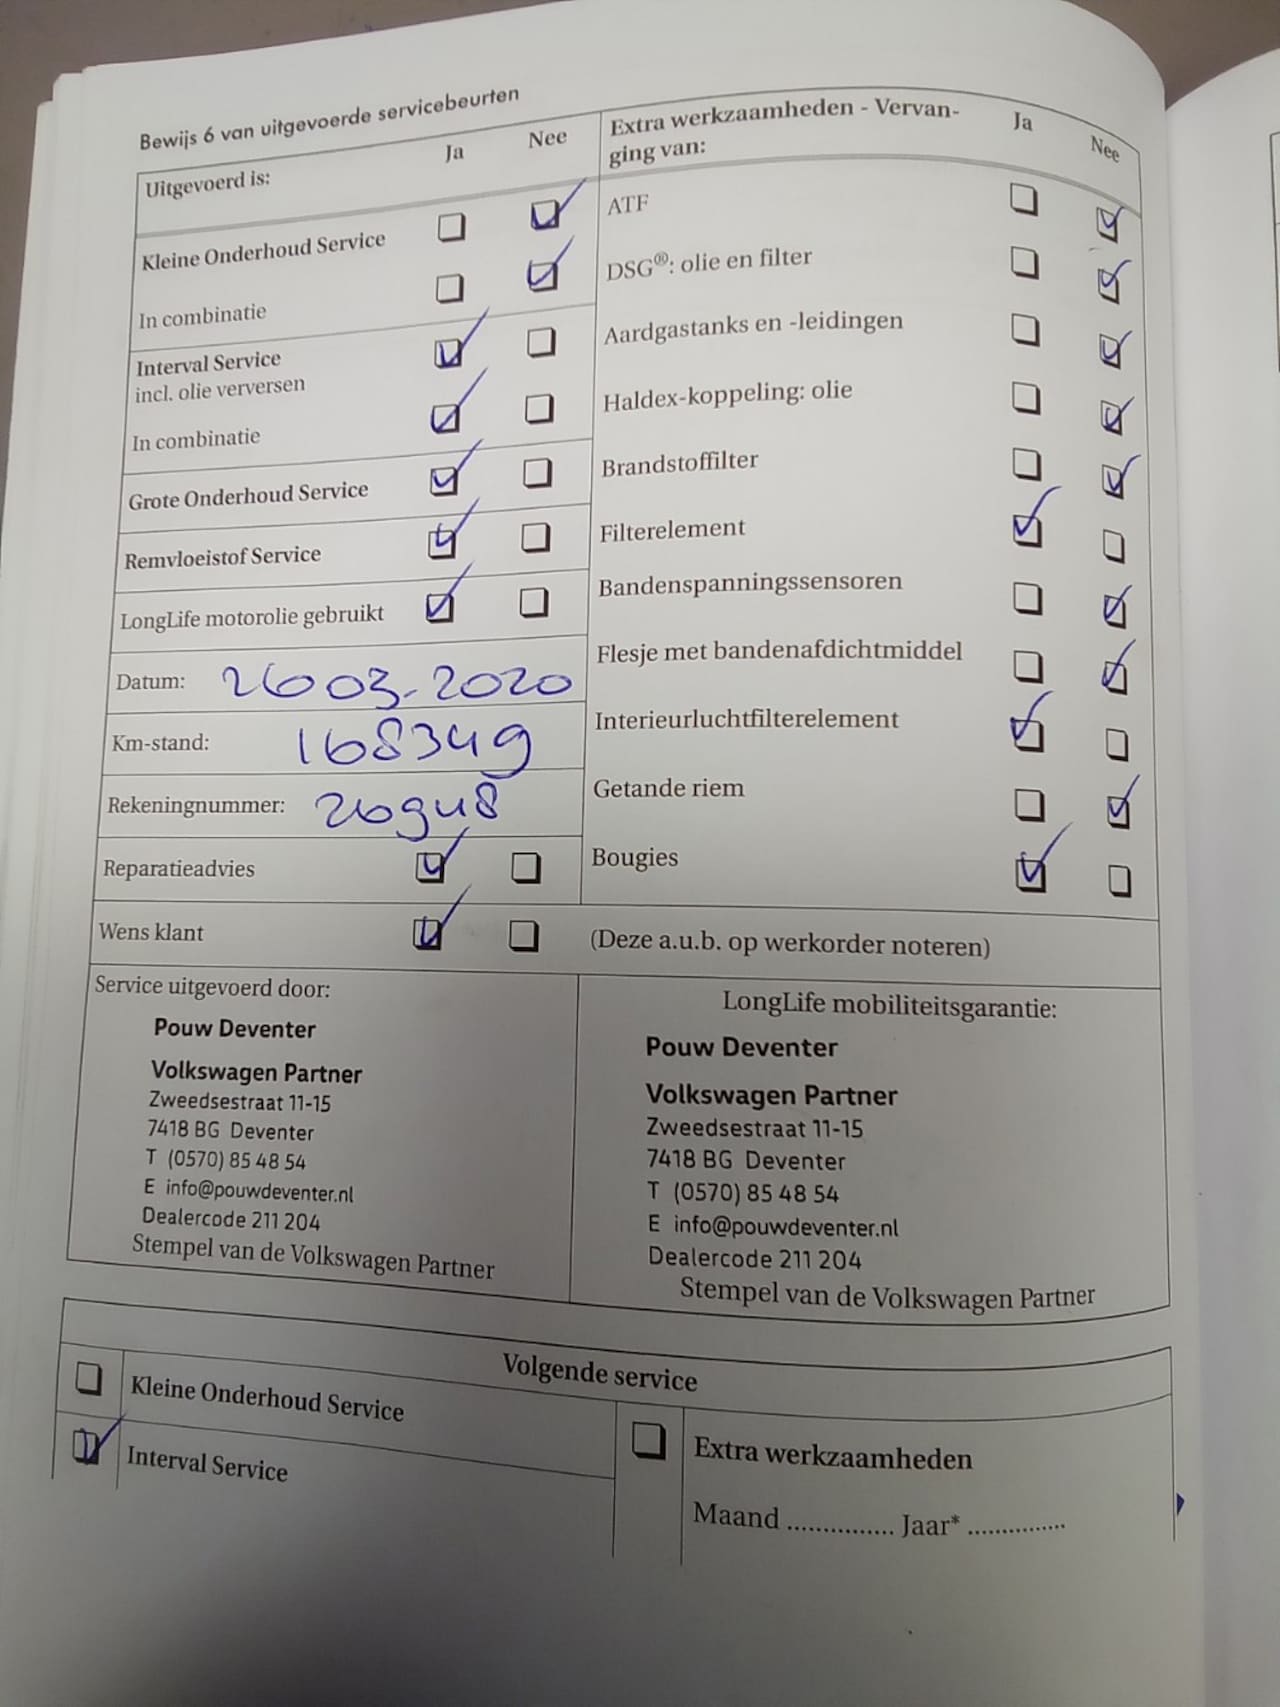 Bewijs 6 van uitgevoerde servicebeurten
Uitgevoerd is:
Ja
Nee
Kleine Onderhoud Service
In combinatie
Interval Service
incl. olie verversen
In combinatie
Grote Onderhoud Service
Remvloeistof Service
LongLife motorolie gebruikt
Datum: 26 03-2020
Km-stand: 168349
Rekeningnummer: 26948
Reparatieadvies
Wens klant
(Deze a.u.b. op werkorder noteren)
Extra werkzaamheden - Vervan-
ging van:
Ja
Nee
ATF
DSG®: olie en filter
Aardgastanks en -leidingen
Haldex-koppeling: olie
Brandstoffilter
Filterelement
Bandenspanningssensoren
Flesje met bandenafdichtmiddel
Interieurluchtfilterelement
Getande riem
Bougies
Service uitgevoerd door:
Pouw Deventer
Volkswagen Partner
Zweedsestraat 11-15
7418 BG Deventer
T (0570) 85 48 54
E info@pouwdeventer.nl
Dealercode 211 204
Stempel van de Volkswagen Partner
LongLife mobiliteitsgarantie:
Pouw Deventer
Volkswagen Partner
Zweedsestraat 11-15
7418 BG Deventer
T (0570) 85 48 54
E info@pouwdeventer.nl
Dealercode 211 204
Stempel van de Volkswagen Partner
Volgende service
Kleine Onderhoud Service
Interval Service
Extra werkzaamheden
Maand ............... Jaar* ..............